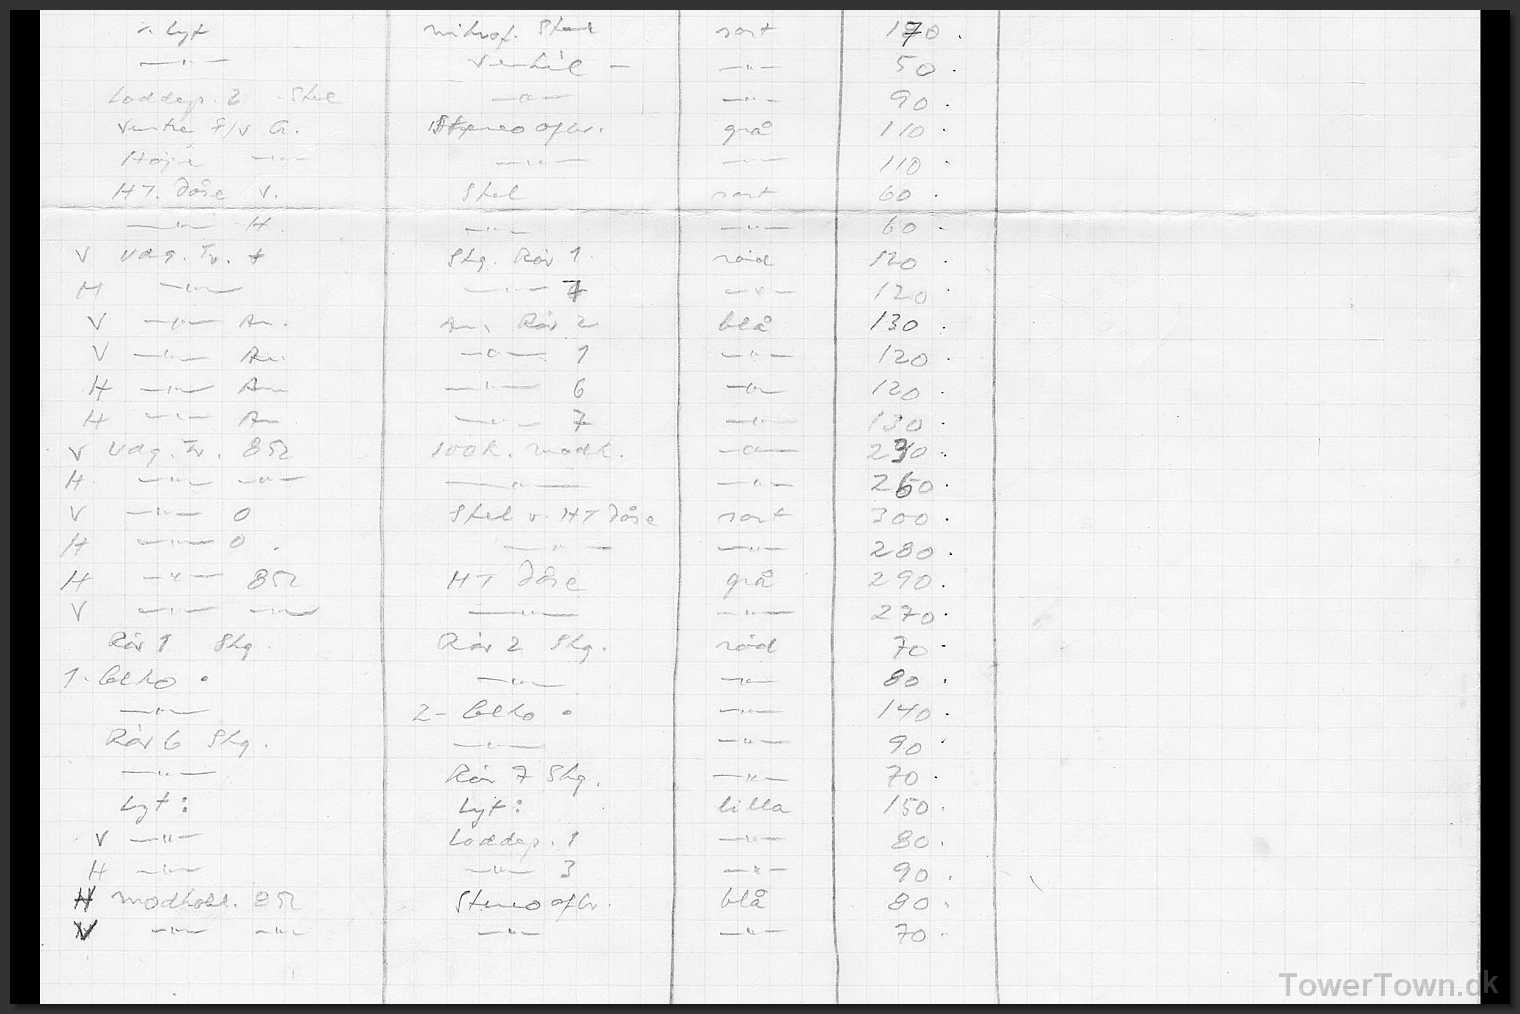 Lyt mikrof. Stel sort 170.
—"— Ventil — —"— 50.
Loddep. 2 Stel —"— —"— 90.
Venstre F/V Gr. Stereo afbr. grå 110.
Højre —"— —"— —"— 110.
HT. Dåse V. Stel sort 60.
—"— H. —"— —"— 60.
V Udg. Tr. + Skg. Rør 1. rød 120.
H —"— —"— 7 —"— 120.
V —"— An. An. Rør 2 blå 130.
V —"— An. —"— 1 —"— 120.
H —"— An —"— 6 —"— 120.
H —"— An —"— 7 —"— 130.
V Udg. Tr. 8Ω 100k. modk. —"— 230.
H. —"— —"— —"— —"— 260.
V —"— 0 Stel v. HT Dåse sort 300.
H —"— 0. —"— —"— 280.
H —"— 8Ω HT Dåse grå 290.
V —"— —"— —"— —"— 270.
Rør 1 Skg. Rør 2 Skg. rød 70.
1. Celko • —"— —"— 80.
—"— 2- Celko • —"— 140.
Rør 6 Skg. —"— —"— 90.
—"— Rør 7 Skg. —"— 70.
Lyt: Lyt: lilla 150.
V —"— Loddep. 1 —"— 80.
H —"— —"— 3 —"— 90.
H modkobl. 8Ω Stereo afbr. blå 80.
V —"— —"— —"— —"— 70.
TowerTown.dk